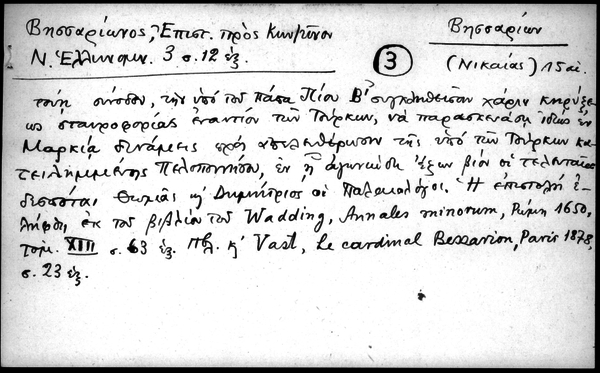 Βησσαρίωνος, Ἐπιστ. πρὸς Κωνμῦνον
Βησσαρίων
Ν. Ἑλληνομν. 3 σ. 12 ἑξ.
3
(Νικαίας) 15 αἰ.
σύνοδον, τὴν ὑπὸ τοῦ πάπα Πίου Β' συγκληθεῖσαν χάριν κηρύξε-
ως σταυροφορίας ἐναντίον τῶν Τούρκων, νὰ παρασκευάσῃ ἰδίως ἐν
Μαρκίᾳ δυνάμεις πρὸς ἀπελευθέρωσιν τῆς ὑπὸ τῶν Τούρκων κα-
τειλημμένης Πελοποννήσου, ἐν ᾗ ἀγωνιώδη ἔζων βίον οἱ τελευταῖοι
δεσπόται Θωμᾶς κ' Δημήτριος οἱ Παλαιολόγοι. Ἡ ἐπιστολὴ ἐ-
λήφθη ἐκ τοῦ βιβλίου τοῦ Wadding, Annales minorum, Ρώμη 1650,
τομ. XIII σ. 63 ἑξ. Πβλ. κ' Vast, Le cardinal Bessarion, Paris 1878,
σ. 23 ἑξ.